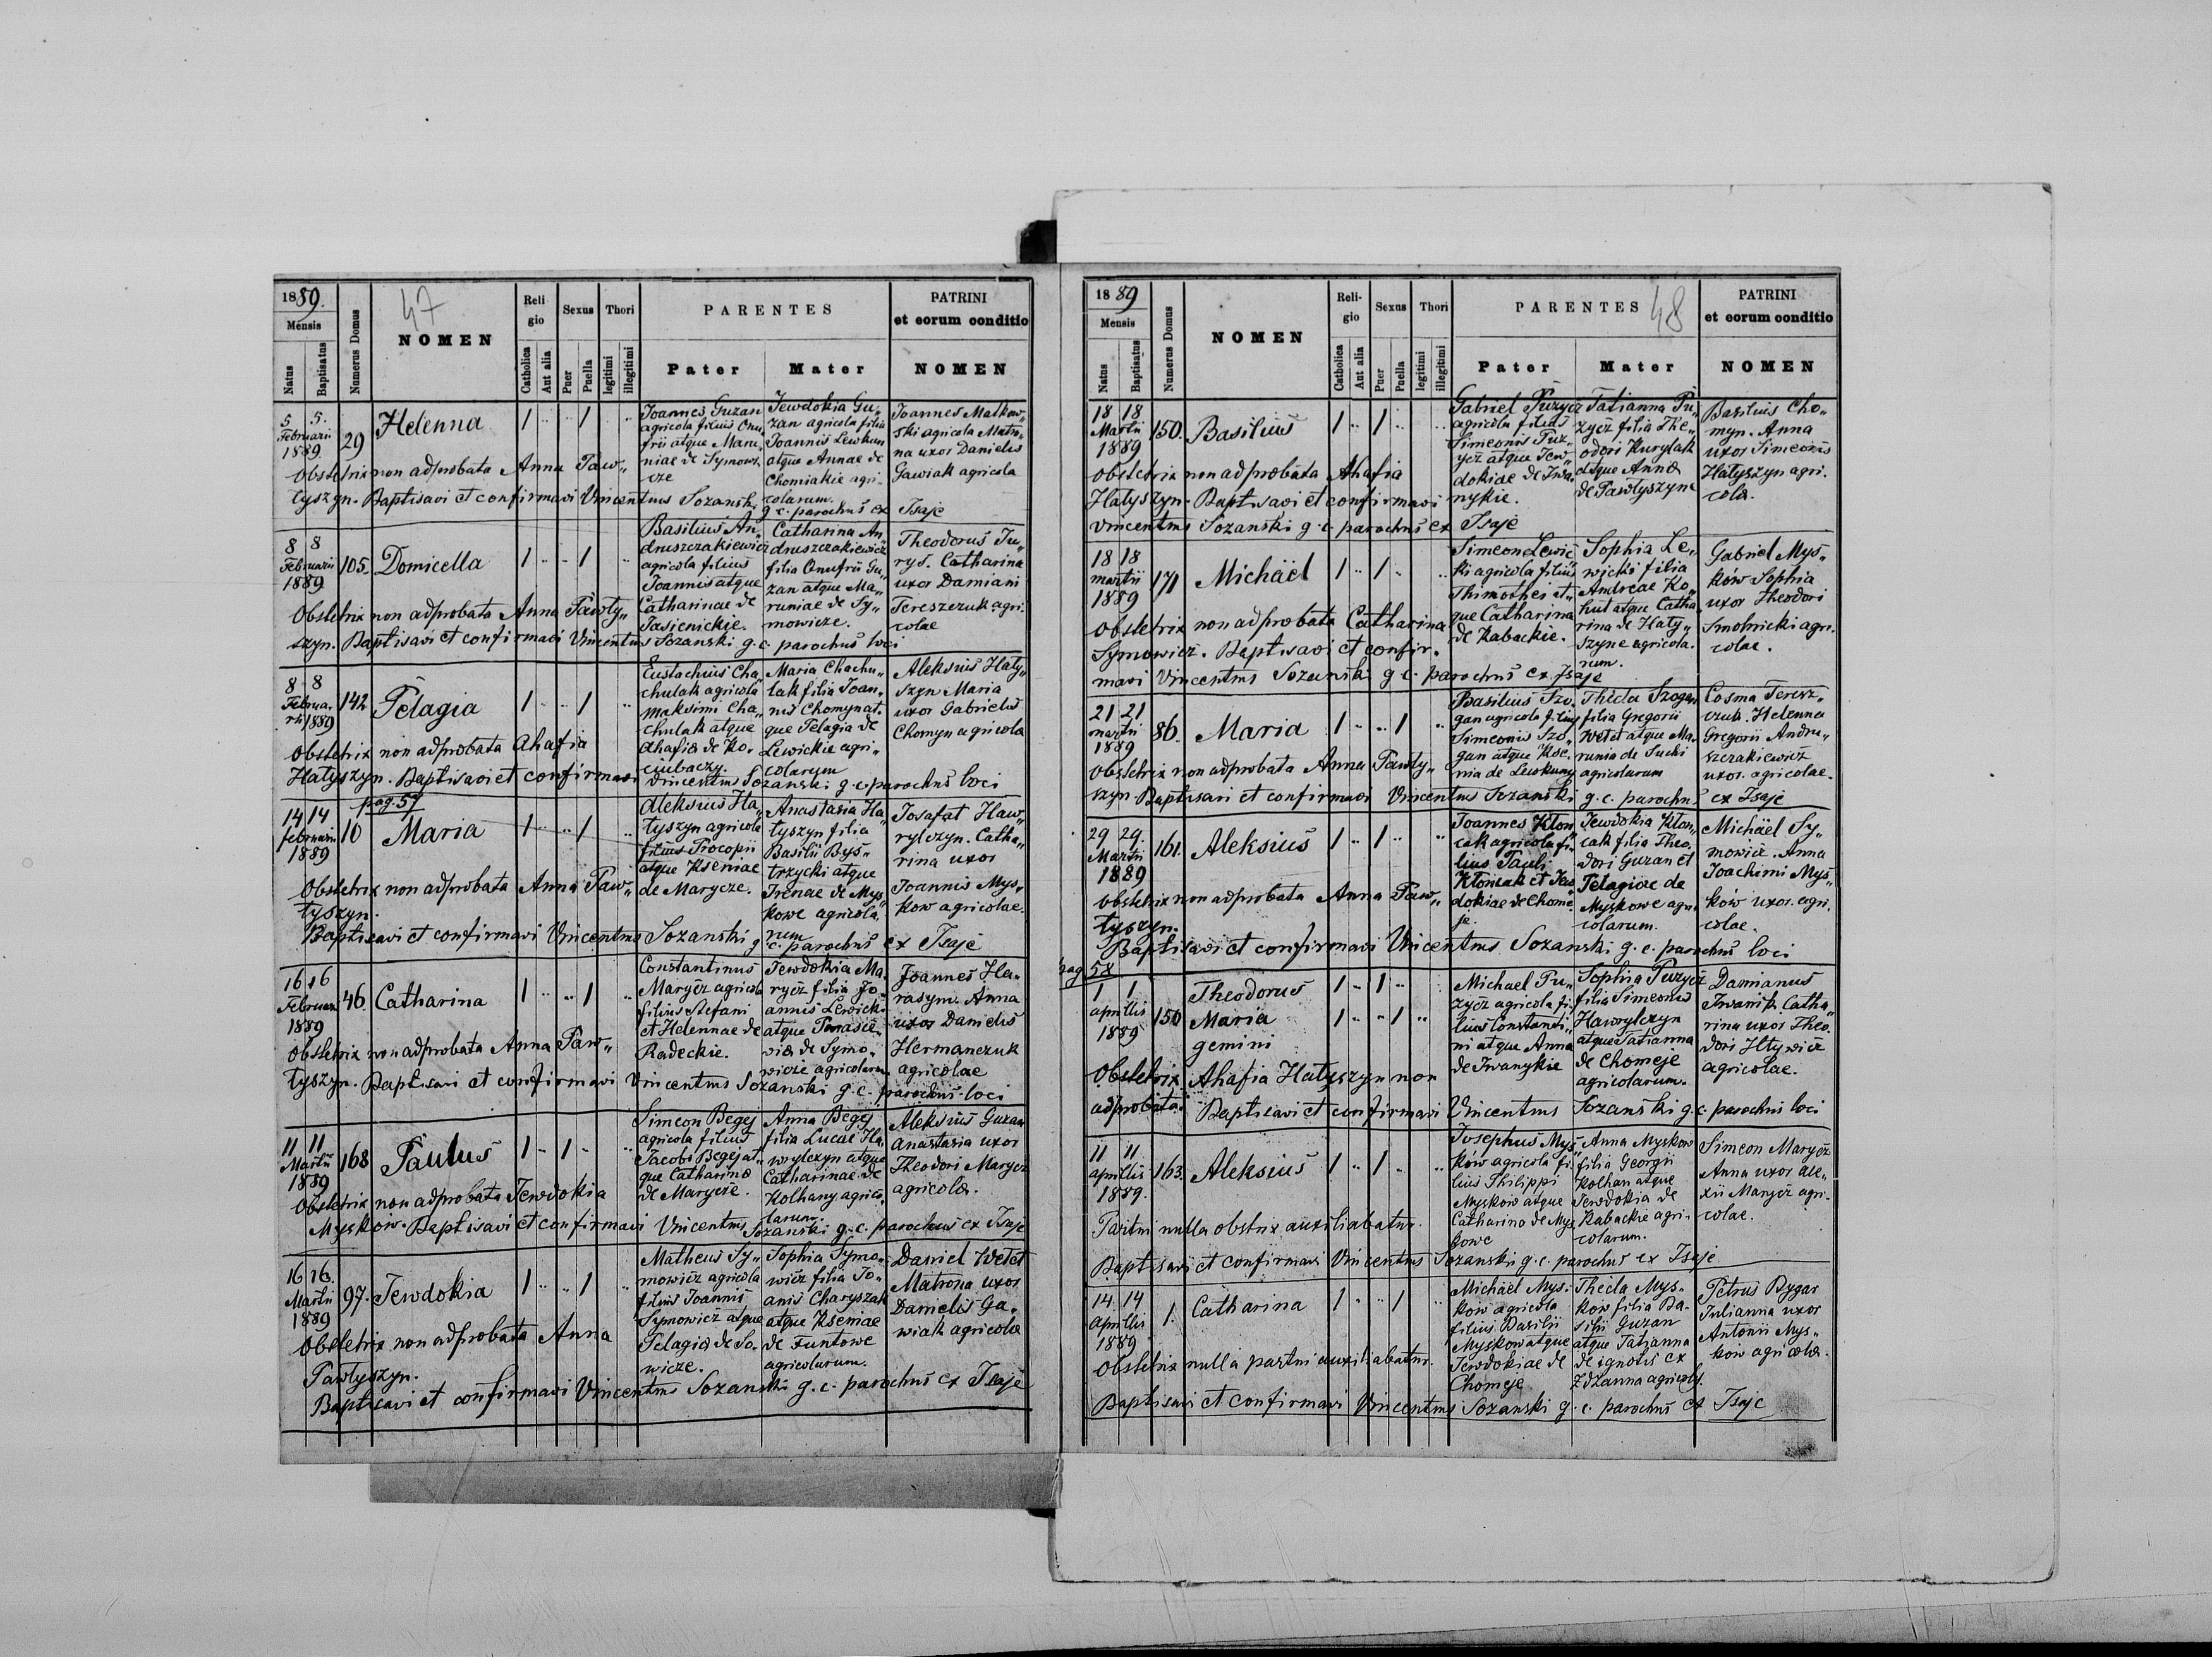 1889.
Mensis
Natus
Baptisatus
Numerus Domus
47
NOMEN
Religio
Catholica
Aut alia
Sexus
Puer
Puella
Thori
legitimi
illegitimi
PARENTES
Pater
Mater
PATRINI
et eorum conditio
NOMEN
5 5.
Februarii
1889.
29
Helenna
1 .. .. 1 ..
Joannes Guzan
agricola filius Onu„
frii atque Maru„
niae de Symowi„
cze
Jewdokia Gu„
zan agricola filia
Joannis Lewkun
atque Annae de
Chomiakie agri„
colarum.
Joannes Matkow„
ski agricola Matro„
na uxor Danielis
Gawiak agricola
Obstetrix non adprobata Anna Paw„
łyszyn. Baptisavi et confirmavi Vincentius Sozanski g. c. parochus ex Isaje
8 8
Februarii
1889
105.
Domicella
1 .. .. 1 ..
Basilius An„
druszczakiewicz
agricola filius
Joannis atque
Catharinae de
Jasienickie.
Catharina An„
druszczakiewicz
filia Onufrii Gu„
zan atque Ma„
runiae de Sy„
mowicze.
Theodorus Ju„
ryś. Catharina
uxor Damiani
Tereszczuk agri„
colae
Obstetrix non adprobata Anna Pawły„
szyn. Baptisavi et confirmavi Vincentius Sozanski g. c. parochus loci
8 8
Februa„
rii 1889
142
Pelagia
1 .. .. 1 ..
Eustachius Cha„
chulak agricola
Maksimi Cha„
chulak atque
Ahafia de Ko„
ciubaczy.
Maria Chachu„
lak filia Joan„
nis Chomyn at„
que Pelagia de
Lewickie agri„
colarum
Aleksius Haty„
szyn Maria
uxor Gabrielis
Chomyn agricola
Obstetrix non adprobata Ahafia
Hatyszyn. Baptisavi et confirmavi Vincentius Sozanski g. c. parochus loci
pag. 57
14 14
februarii
1889
10
Maria
1 .. .. 1 ..
Aleksius Ha„
tyszyn agricola
filius Procopii
atque Kseniae
de Marycze.
Anastasia Ha„
tyszyn filia
Basilii Bys„
trzycki atque
Irenae de Mys„
kowe agricola„
rum
Josafat Haw„
rylczyn. Catha„
rina uxor
Joannis Mys„
kow agricolae.
Obstetrix non adprobata Anna Paw„
łyszyn.
Baptisavi et confirmavi Vincentius Sozanski g. c. parochus ex Isaje
16 16
Februar.
1889
46.
Catharina
1 .. .. 1 ..
Constantinus
Marycz agricola
filius Stefani
et Helennae de
Radeckie.
Jewdokia Ma„
rycz filia Jo„
annis Lewicki
atque
de Symo„
wicze agricolarum.
Joannes Ha„
rasym. Anna
uxor Danielis
Hermanczuk
agricolae
Obstetrix non adprobata Anna Paw„
łyszyn. Baptisavi et confirmavi Vincentius Sozanski g. c. parochus loci
11 11
Martii
1889
168
Paulus
1 .. 1 .. ..
Simeon Begej
agricola filius
Jacobi Begej at„
que Catharina
de Marycze.
Anna Begej
filia Lucae Ha„
wrylczyn atque
Catharinae de
Kolhany agrico„
larum.
Aleksius Guzan
Anastasia uxor
Theodori Marycz
agricola.
Obstetrix non adprobata Jewdokia
Myskow. Baptisavi et confirmavi Vincentius Sozanski g. c. parochus ex Isaje
16 16.
Martii
1889
97.
Jewdokia
1 .. .. 1 ..
Matheus Sy„
mowicz agricola
filius Joannis
Symowicz atque
Pelagia de So„
wicze.
Sophia Symo„
wicz filia Jo„
anis Charyszak
atque Kseniae
de Funtowe
agricolarum.
Daniel
Matrona uxor
Danielis Ga„
wiak agricola
Obstetrix non adprobata Anna
Pawłyszyn.
Baptisavi et confirmavi Vincentius Sozanski g. c. parochus ex Isaje
1889
Mensis
Natus
Baptisatus
Numerus Domus
NOMEN
Religio
Catholica
Aut alia
Sexus
Puer
Puella
Thori
legitimi
illegitimi
PARENTES
48
Pater
Mater
PATRINI
et eorum conditio
NOMEN
18 18
Martii
1889
150.
Basilius
1 .. 1 .. ..
Gabriel Puzycz
agricola filius
Simeonis Puz„
ycz atque Jew„
dokiae de Iwa„
nykie.
Tatianna Pu„
zycz filia The„
odori Kurylak
atque Anna
de Pawłyszyne
Basilius Cho„
myn. Anna
uxor Simeonis
Hatyszyn agri„
cola.
Obstetrix non adprobata Ahafia
Hatyszyn. Baptisavi et confirmavi
Vincentius Sozanski g. c. parochus ex Isaje
18 18
martii
1889
171
Michäel
1 .. 1 .. ..
Simeon Lewic„
ki agricola filius
Thimothei at„
que Catharina
de Kabackie.
Sophia Le„
wicki filia
Andreae Ko„
hut atque Catha„
rina de Haty„
szyne agricola„
rum.
Gabriel Myś„
ków Sophia
uxor Theodori
Smolnicki agri„
colae.
Obstetrix non adprobata Catharina
Symowicz. Baptisavi et confir„
mavi Vincentius Sozanski g. c. parochus ex Isaje
21 21
martii
1889
86.
Maria
1 .. .. 1 ..
Basilius Szo„
gan agricola filius
Simeonis Szo„
gan atque Kse„
nia de Lewkuny
Thecla Szogan
filia Gregorii
atque Ma„
runia de Suchi
agricolarum
Cosma Teresz„
czuk. Helenna
Gregorii Andru„
szczakiewicz
uxor. agricolae.
Obstetrix non adprobata Anna Pawły„
szyn Baptisavi et confirmavi Vincentius Sozanski g. c. parochus ex Isaje
29 29.
Martii
1889
161.
Aleksius
1 .. 1 .. ..
Joannes Kłon„
cak agricola fi„
lius Pauli
Kłoncak et Jew„
dokiae de Chome„
je.
Jewdokia Kłon„
cak filia Theo„
dori Guzan et
Pelagiae de
Myskowe agri„
colarum.
Michäel Sy„
mowicz. Anna
Joachimi Myś„
ków uxor. agri„
colae.
Obstetrix non adprobata Anna Paw„
łyszyn.
Baptisavi et confirmavi Vincentius Sozanski g. c. parochus loci
1 1
aprilis
1889
150
Theodorus
1 .. 1 ..
Maria
1 .. .. 1 ..
gemini
Michael Pu„
zycz agricola fi„
lius Constanti„
ni atque Anna
de Iwanykie
Sophia Puzycz
filia Simeonis
Hawrylczyn
atque Tatianna
de Chomeje
agricolarum.
Damianus
Iwanik. Catha„
rina uxor Theo„
dori
agricolae.
Obstetrix Ahafia Hatyszyn non
adprobata. Baptisavi et confirmavi Vincentius Sozanski g. c. parochus loci
11 11
aprilis
1889.
163.
Aleksius
1 .. 1 .. ..
Josephus Myś„
ków agricola fi„
lius Philippi
Myskow atque
Catharina de Mys„
kowe
Anna Myskow
filia Georgii
Kolhan atque
Jewdokia de
Kabackie agri„
colarum.
Simeon Marycz
Anna uxor Ale„
xii Marycz agri„
colae.
Partui nulla obstrix auxiliabatur.
Baptisavi et confirmavi Vincentius Sozanski g. c. parochus ex Isaje
14. 14
Aprilis
1889
1.
Catharina
1 .. .. 1 ..
Michäel Mys„
ków agricola
filius Basilii
Myskow atque
Jewdokiae de
Chomeje
Thecla Mys„
ków filia Ba„
silii Guzan
atque Tatianna
de ignotis ex
Zdzanna agricolis.
Petrus Bygar
Julianna uxor
Antonii Mys„
ków agricola.
Obstetrix nulla partui auxiliabatur.
Baptisavi et confirmavi Vincentius Sozanski g. c. parochus ex Isaje